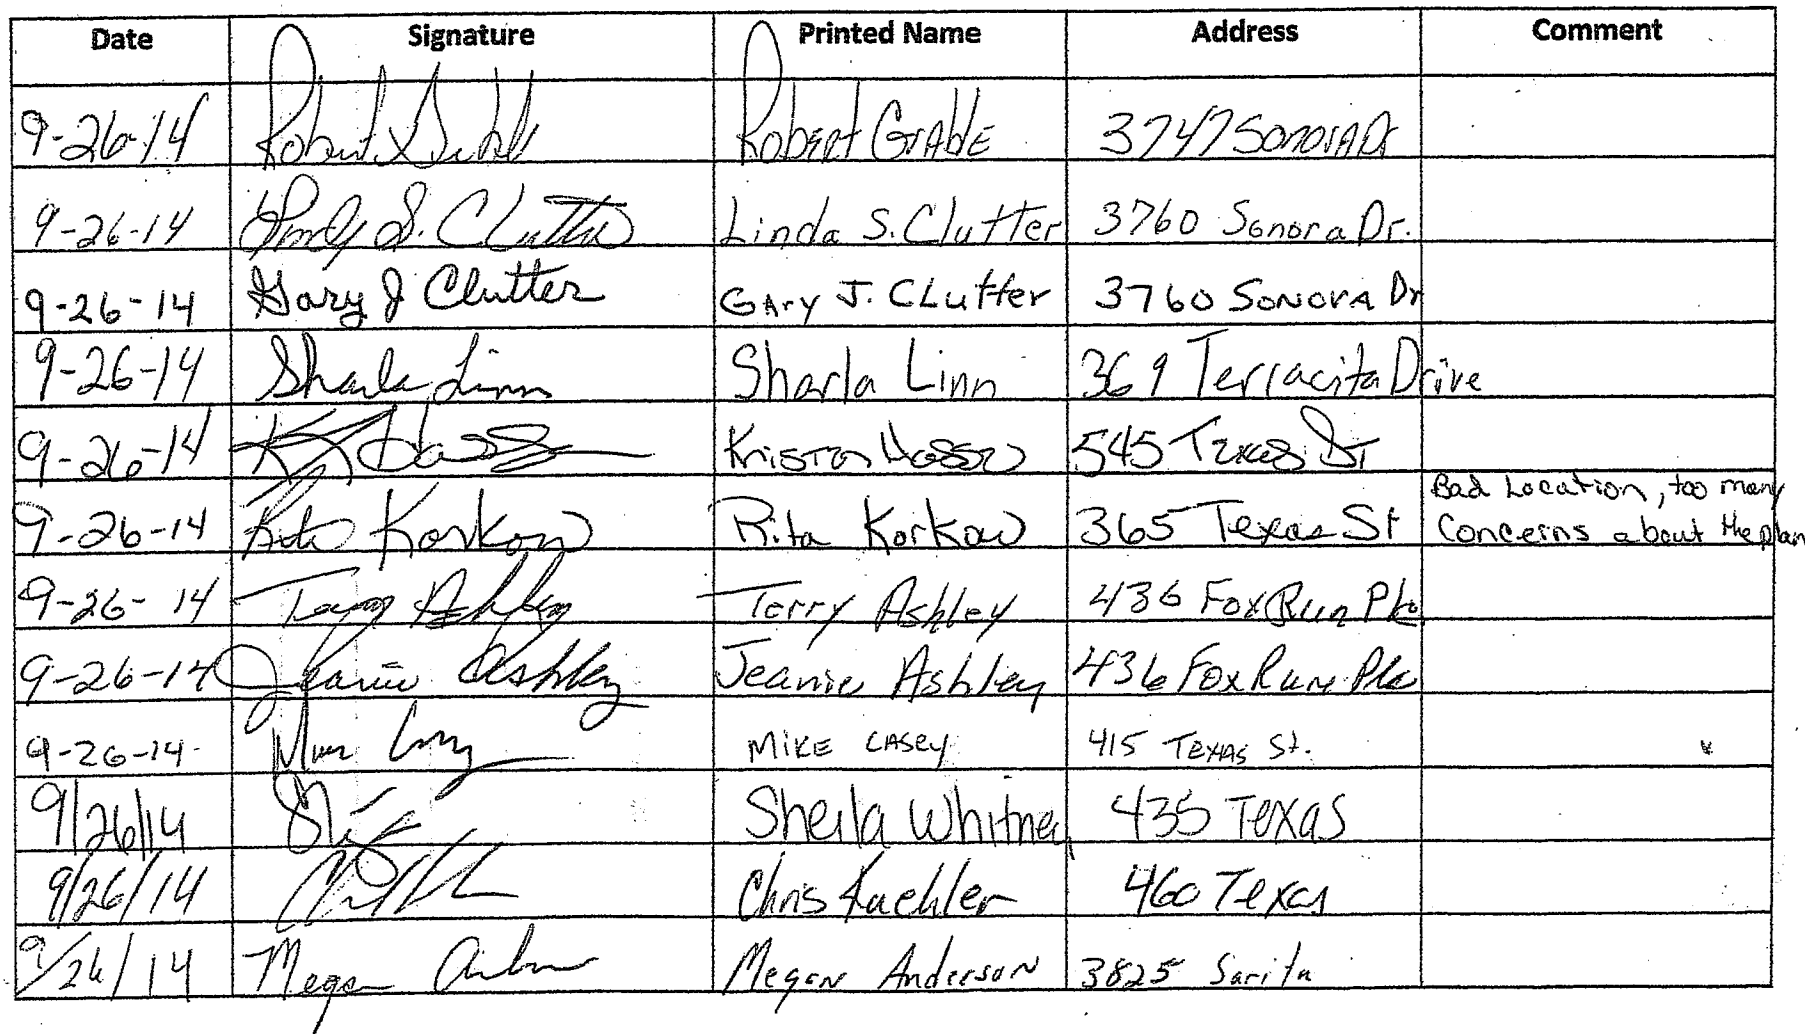 Date Signature Printed Name Address Comment
9-26-14 Robert Robert Grable 3747 Sonora Dr
9-26-14 Linda S. Clutter Linda S. Clutter 3760 Sonora Dr.
9-26-14 Gary J Clutter GAry J. CLutter 3760 SONORA Dr
9-26-14 Sharla Linn Sharla Linn 369 Terracita Drive
9-26-14 545 Texas St
Bad Location, too many
9-26-14 Rita Korkow Rita Korkow 365 Texas St Concerns about the plan
9-26-14 Terry Ashley Terry Ashley 436 Fox Run Pkw
9-26-14 Jeanie Ashley Jeanie Ashley 436 Fox Run Pkw
9-26-14 MIKE CASEY 415 TEXAS St.
9/26/14 Sheila Whitney 435 Texas
9/26/14 Chris Kaehler 460 Texas
9/26/14 Megan Megan Anderson 3825 Sarita